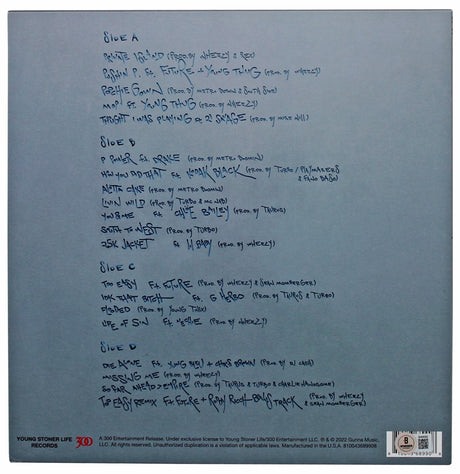 SIDE A
PRIVATE ISLAND (PROD. BY WHEEZY & REX)
PUSHIN P. Ft. FUTURE + YOUNG THUG (PROD. BY WHEEZY)
POOCHIE GOWN (PROD. BY METRO BOOMIN & SOUTH SIDE)
MOP Ft. YOUNG THUG (PROD. BY WHEEZY)
THOUGHT I WAS PLAYING Ft 21 SAVAGE (PROD. BY MIKE WILL)
SIDE B
P POWER Ft DRAKE (PROD. BY METRO BOOMIN)
HOW YOU DID THAT Ft KODAK BLACK (PROD. BY TURBO /
ALOTTA CAKE (PROD. BY METRO BOOMIN)
LIVIN WILD (PROD. BY TURBO &
YOU & ME Ft CHLOE BAILEY (PROD. BY TAURUS)
SOUTH TO WEST (PROD. BY TURBO)
25K JACKET Ft LIL BABY (PROD. BY WHEEZY)
SIDE C
TOO EASY Ft. FUTURE (PROD. BY WHEEZY & SEAN MOMBERGER)
IDK THAT BITCH Ft. G HERBO (PROD. BY TAURUS & TURBO)
FLOODED (PROD. BY YOUNG
LIFE OF SIN Ft. NECHIE (PROD. BY WHEEZY)
SIDE D
DIE ALONE Ft. YUNG BLEU & CHRIS BROWN (PROD. BY
MISSING ME (PROD. BY WHEEZY)
SO FAR AHEAD > EMPIRE (PROD. BY TAURUS & TURBO & CHARLIE HANDSOME)
TOO EASY REMIX Ft FUTURE + RODDY RICCH - BONUS TRACK (PROD. BY WHEEZY & SEAN MOMBERGER)
YOUNG STONER LIFE
RECORDS
300
A 300 Entertainment Release. Under exclusive license to Young Stoner Life/300 Entertainment LLC. ℗ & © 2022 Gunna Music,
LLC. All rights reserved. Unauthorized duplication is a violation of applicable laws. Manufactured in the U.S.A. 810043689908
B